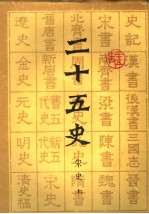 二十五史
宋史 上
史記 漢書 後漢書 三國志 晉書
宋書 南齊書 梁書 陳書 魏書
北齊書
舊唐書 新唐書 舊五代史 新五代史 宋史
遼史 金史 元史 明史 清史稿